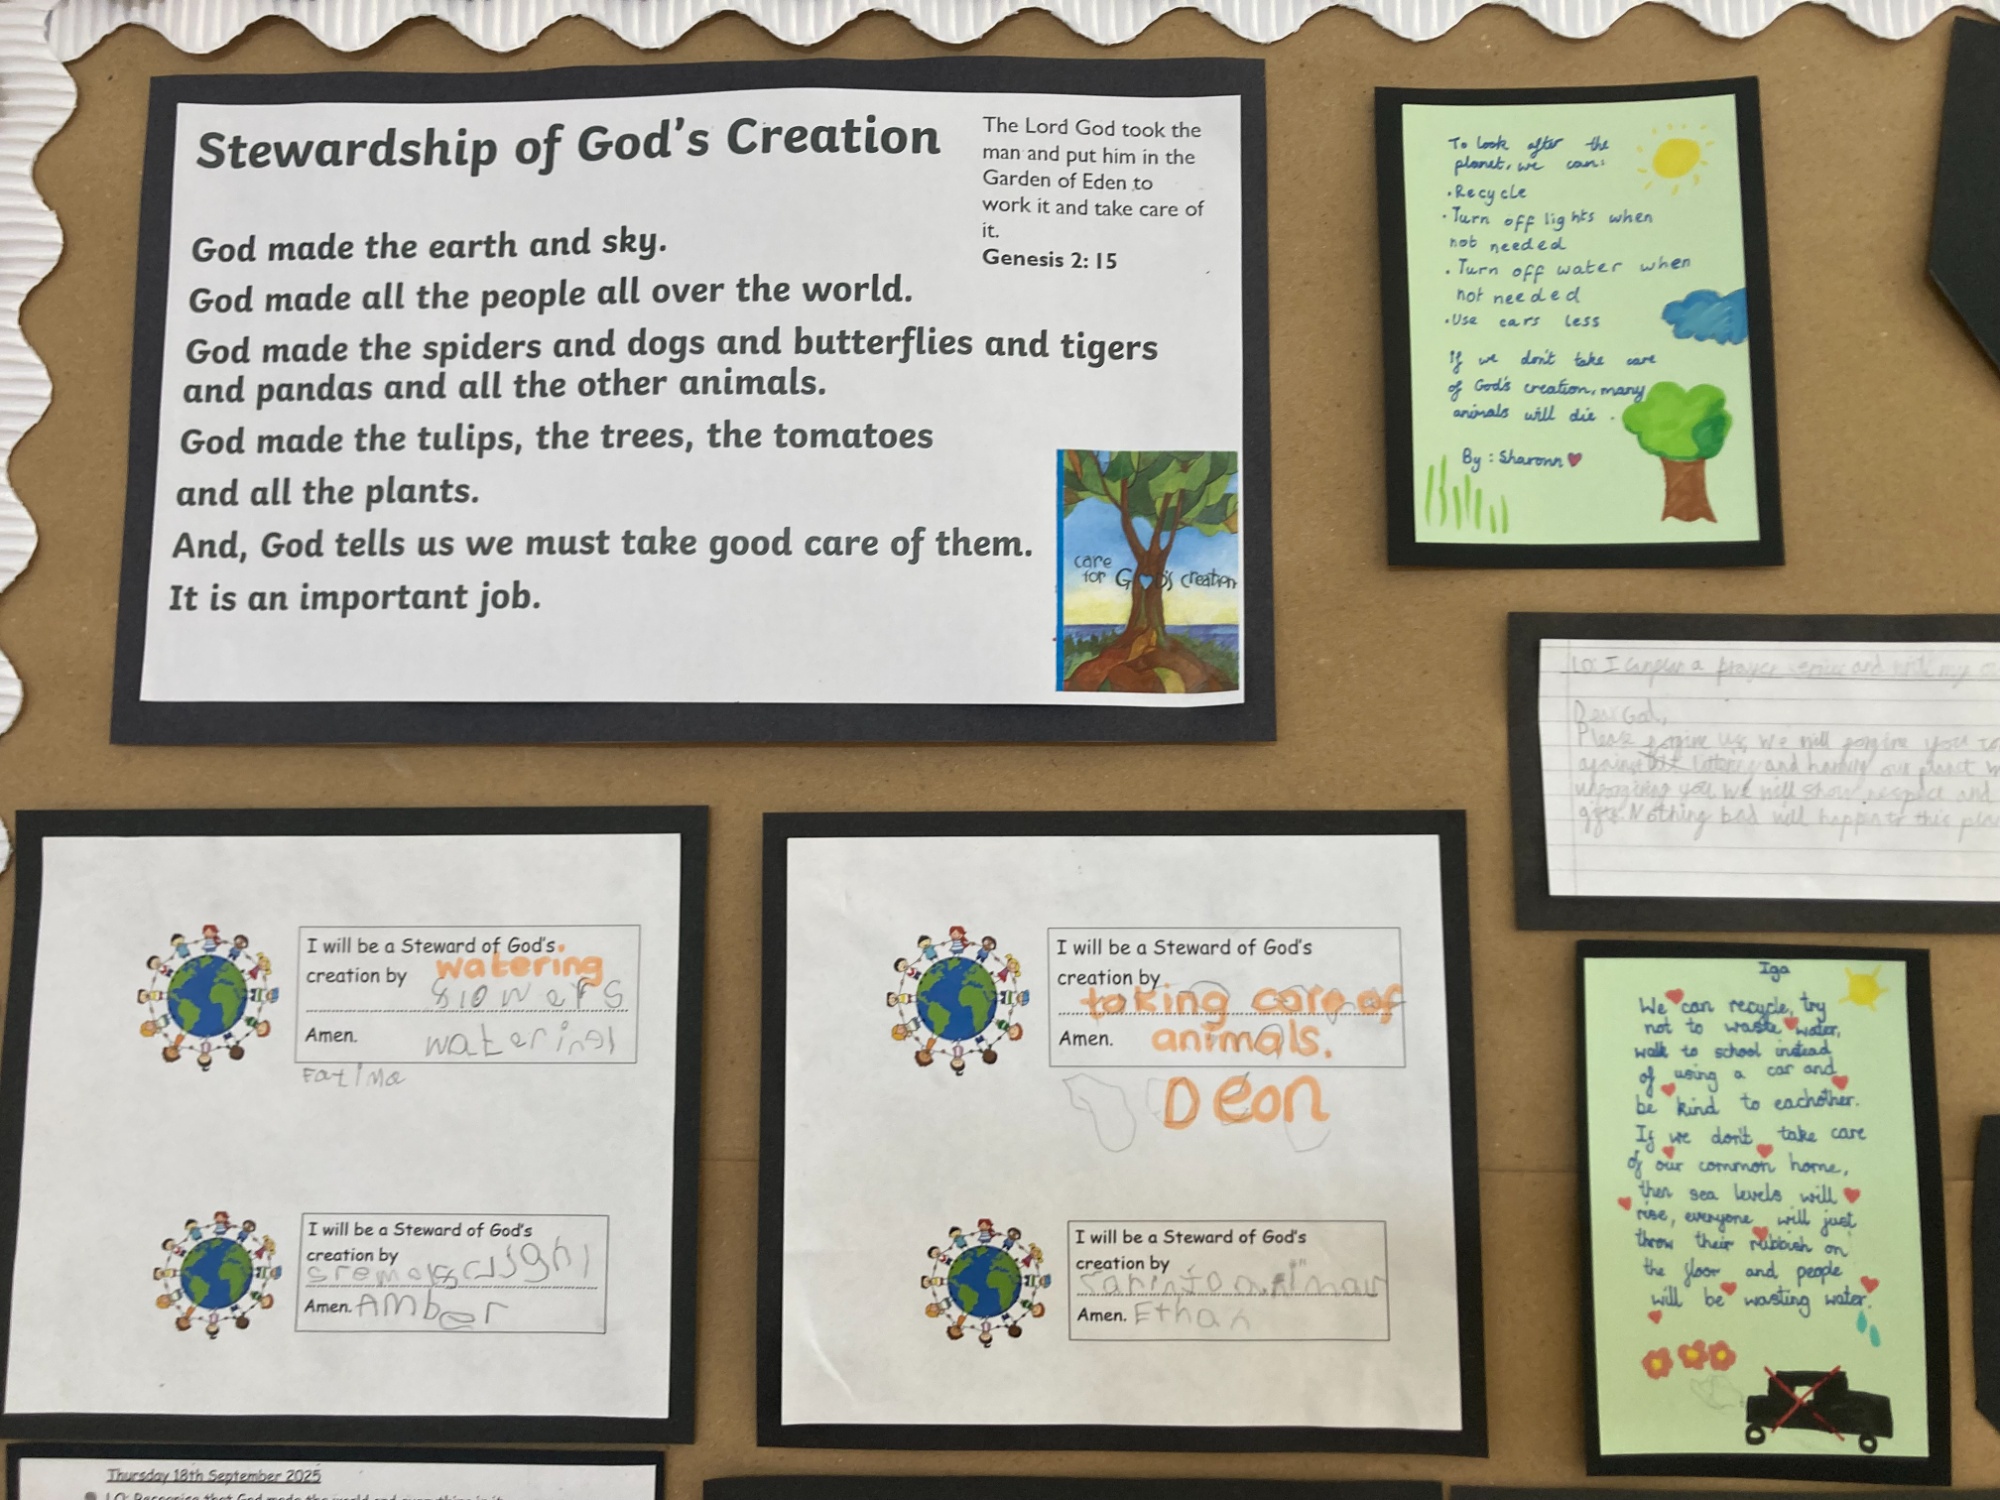 Stewardship of God's Creation
The Lord God took the
man and put him in the
Garden of Eden to
work it and take care of
it.
Genesis 2: 15
God made the earth and sky.
God made all the people all over the world.
God made the spiders and dogs and butterflies and tigers
and pandas and all the other animals.
God made the tulips, the trees, the tomatoes
and all the plants.
And, God tells us we must take good care of them.
It is an important job.
care
for God's creation
To look after the
planet, we can:
• Recycle
• Turn off lights when
not needed
• Turn off water when
not needed
• Use cars less
If we don't take care
of God's creation, many
animals will die.
By: Sharonn
LO: I can a prayer and with my
Dear God,
Please forgive us, we will forgive you
against and our planet
you we will show respect and
Nothing bad will happen to this
I will be a Steward of God's
creation by watering
flowers
Amen. watering
Fatima
I will be a Steward of God's
creation by
taking care of
Amen. animals.
Deon
I will be a Steward of God's
creation by
Amen. Amber
I will be a Steward of God's
creation by
Amen. Ethan
Iga
We can recycle, try
not to waste water,
walk to school instead
of using a car and
be kind to eachother.
If we don't take care
of our common home,
then sea levels will
rise, everyone will just
throw their rubbish on
the floor and people
will be wasting water.
Thursday 18th September 2025
LO: Recognise that God made the world and everything in it.